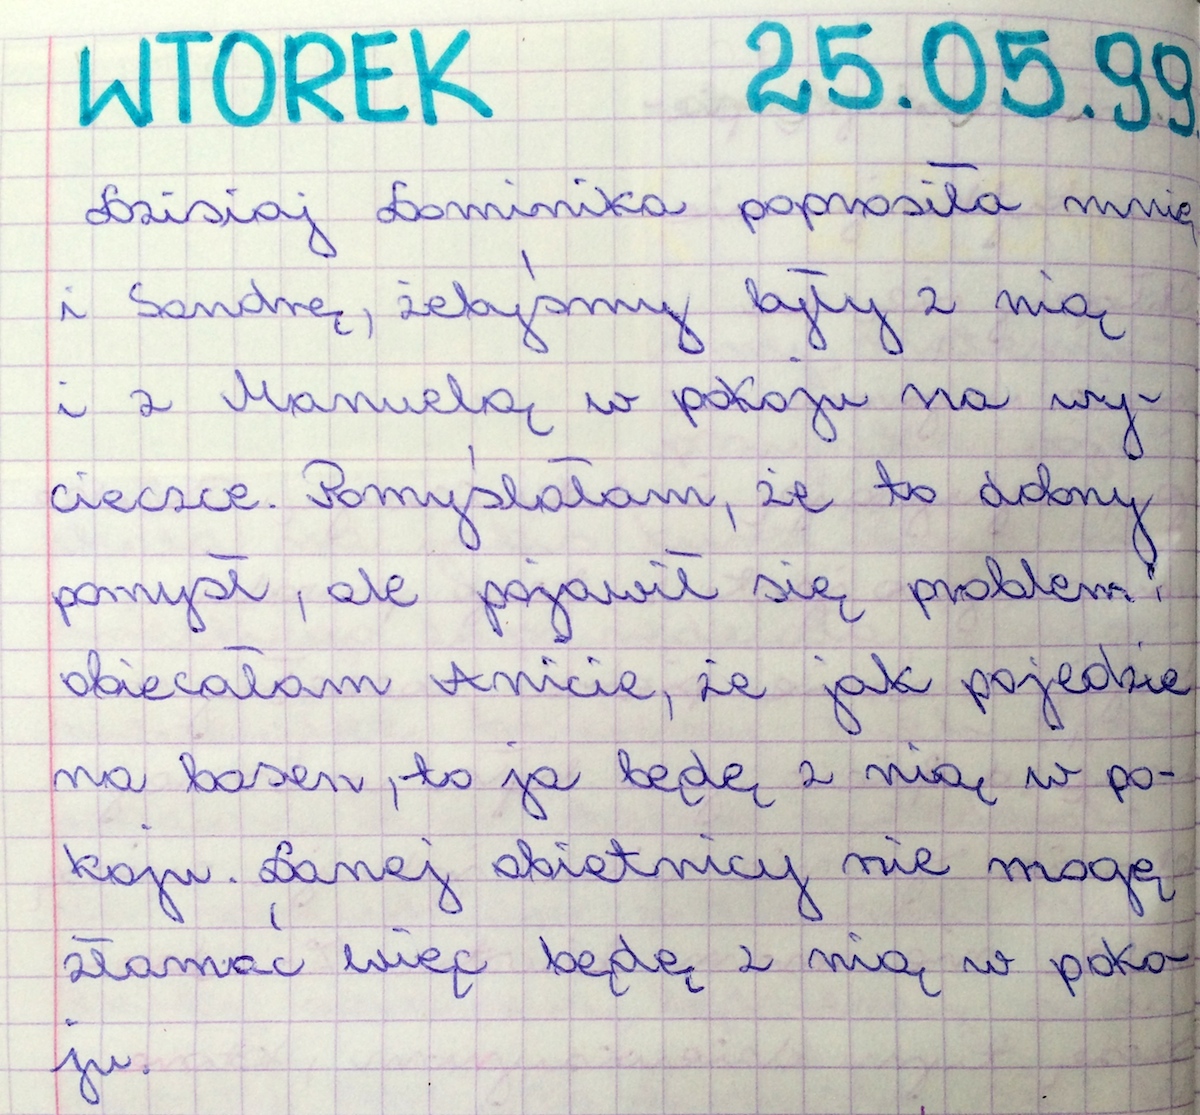 WTOREK 25.05.99
Dzisiaj Dominika poprosiła mnie
i Sandrę, żebyśmy były z nią
i z Manuelą w pokoju na wy-
cieczce. Pomyślałam, że to dobry
pomysł, ale pojawił się problem:
obiecałam Anicie, że jak pojedzie
na basen, to ja będę z nią w po-
koju. Danej obietnicy nie mogę
złamać więc będę z nią w poko-
ju.